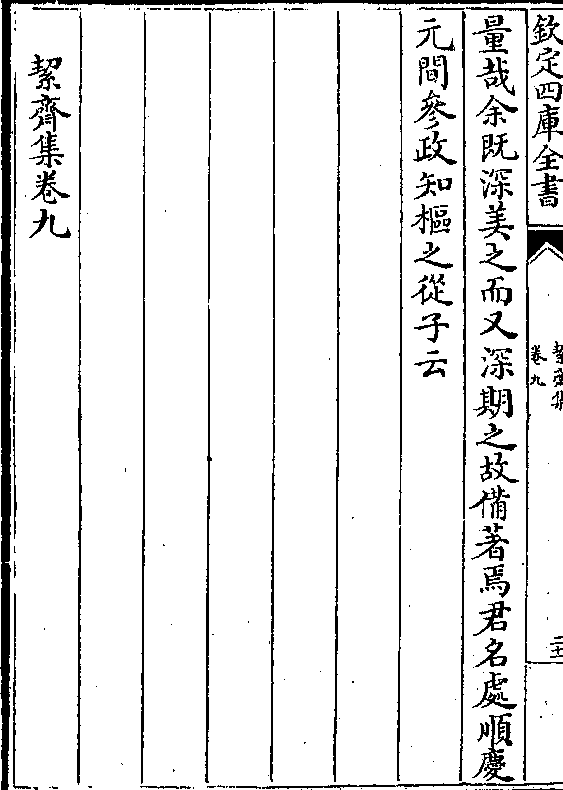 欽定四庫全書
絜齋集
卷九
量哉余既深美之而又深期之故備著焉君名處順慶
元間參政知樞之從子云
絜齋集卷九